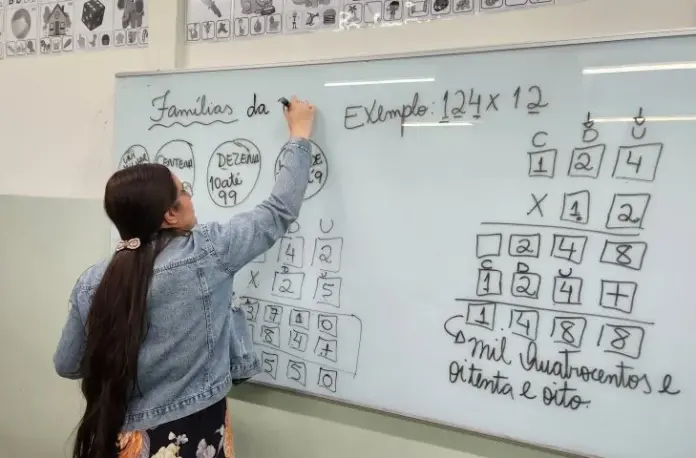 Famílias da
CENTENA
DEZENA
10 até
99
D U
4 2
x 2 5
8 4 +
5 5 0
Exemplo: 124 x 12
C D U
1 2 4
x 1 2
2 4 8
C D U
1 2 4 +
1 4 8 8
mil quatrocentos e
oitenta e oito.